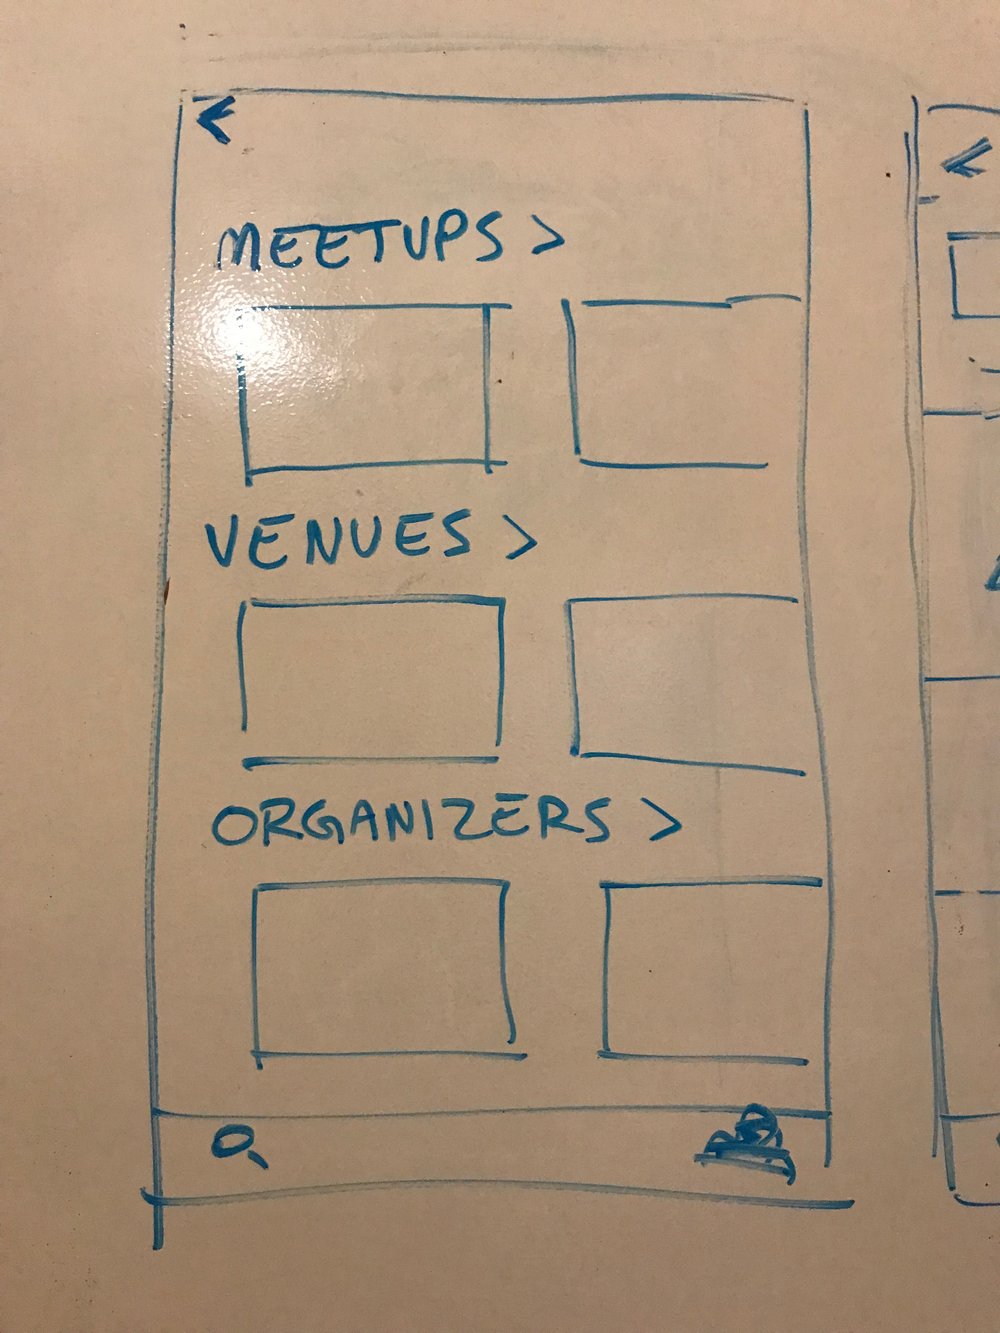 MEETUPS >
VENUES >
ORGANIZERS >